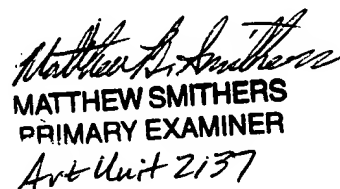 Matthew B. Smithers
MATTHEW SMITHERS
PRIMARY EXAMINER
Art Unit 2137